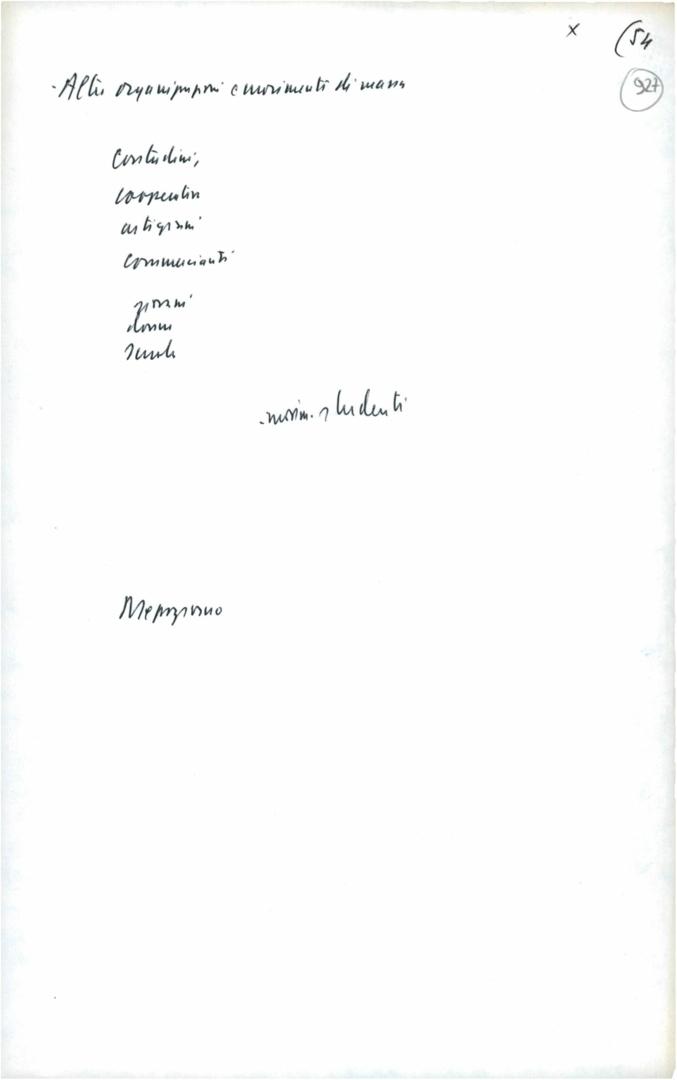 x
(54
927
- Altre organizzazioni e movimenti di massa
Contadini,
cooperative
artigiani
commercianti
giovani
donne
scuola
- movim. studenti
Mezzogiorno